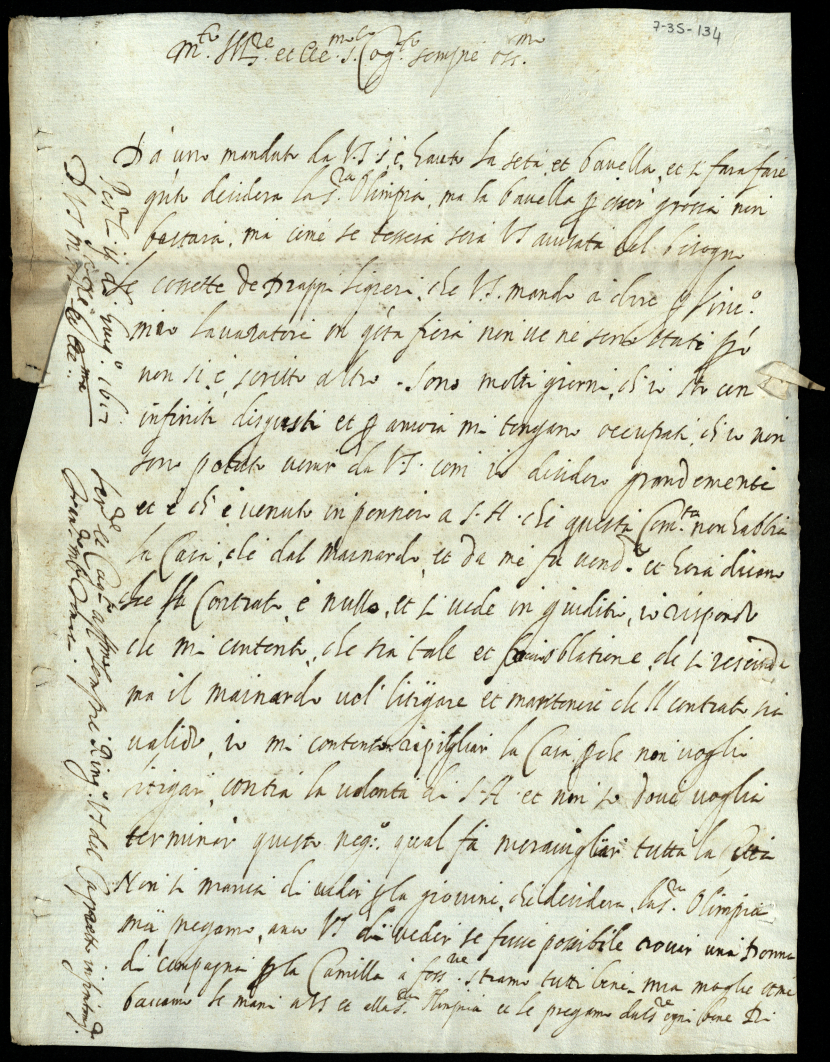 7-35-134
M.to Ill.re et Ecc.mo s.r Cog.to sempre oss.mo
Da uno mandato da V.S. si è hauto la seta, et bavella, et si fara fare
q.to desidera la s.ra Olimpia, ma la bavella p esser grossa non
bastara, ma come se tessera sera VS avisata del bisogno
Le cosette de Drappi ligieri, che V.S. mando a
mio lavoratore in q.sta fiera non ve ne sono stati p.ò
non si è scritto altro. Sono molti giorni, ch'io sto con
infiniti disgusti et p ancora mi tengano occupati, ch'io non
sono potuto venir da VS. com' io desidero grandemente
et è ch' è venuto in pensier a S.A. che questa Com.tà non habbia
la Casa, che dal Mainardo, et da me fu vend.ta et hora dicono
che il Contrato è nullo, et si vede in giuditio, io rispondo
che mi contento, che sia tale et che si rescinda
ma il Mainardo vol' litigare et mantenere che Il contrato sia
valido, io mi contento ripigliar la Casa, p che non voglio
litigar, contra la volonta di S.A. et non so dove voglia
terminar questo neg.o qual fa meravigliar tutta la Città
Non si manca di veder p la giovine, che desidera la s.ra Olimpia
ma pregamo, anco VS. di veder se fusse possibile trovar una Donna
di compagna p la Camilla stiamo tutti bene mia moglie et me
basciamo le mani a VS et alla s.ra Olimpia et le pregamo dal S.re ogni bene Di
li di 1612
D. V.S. M.to Ill.re et Ecc.ma
Ser.re et Cog.to aff.mo sempre Ring.o VS del Capretto infinitam.te